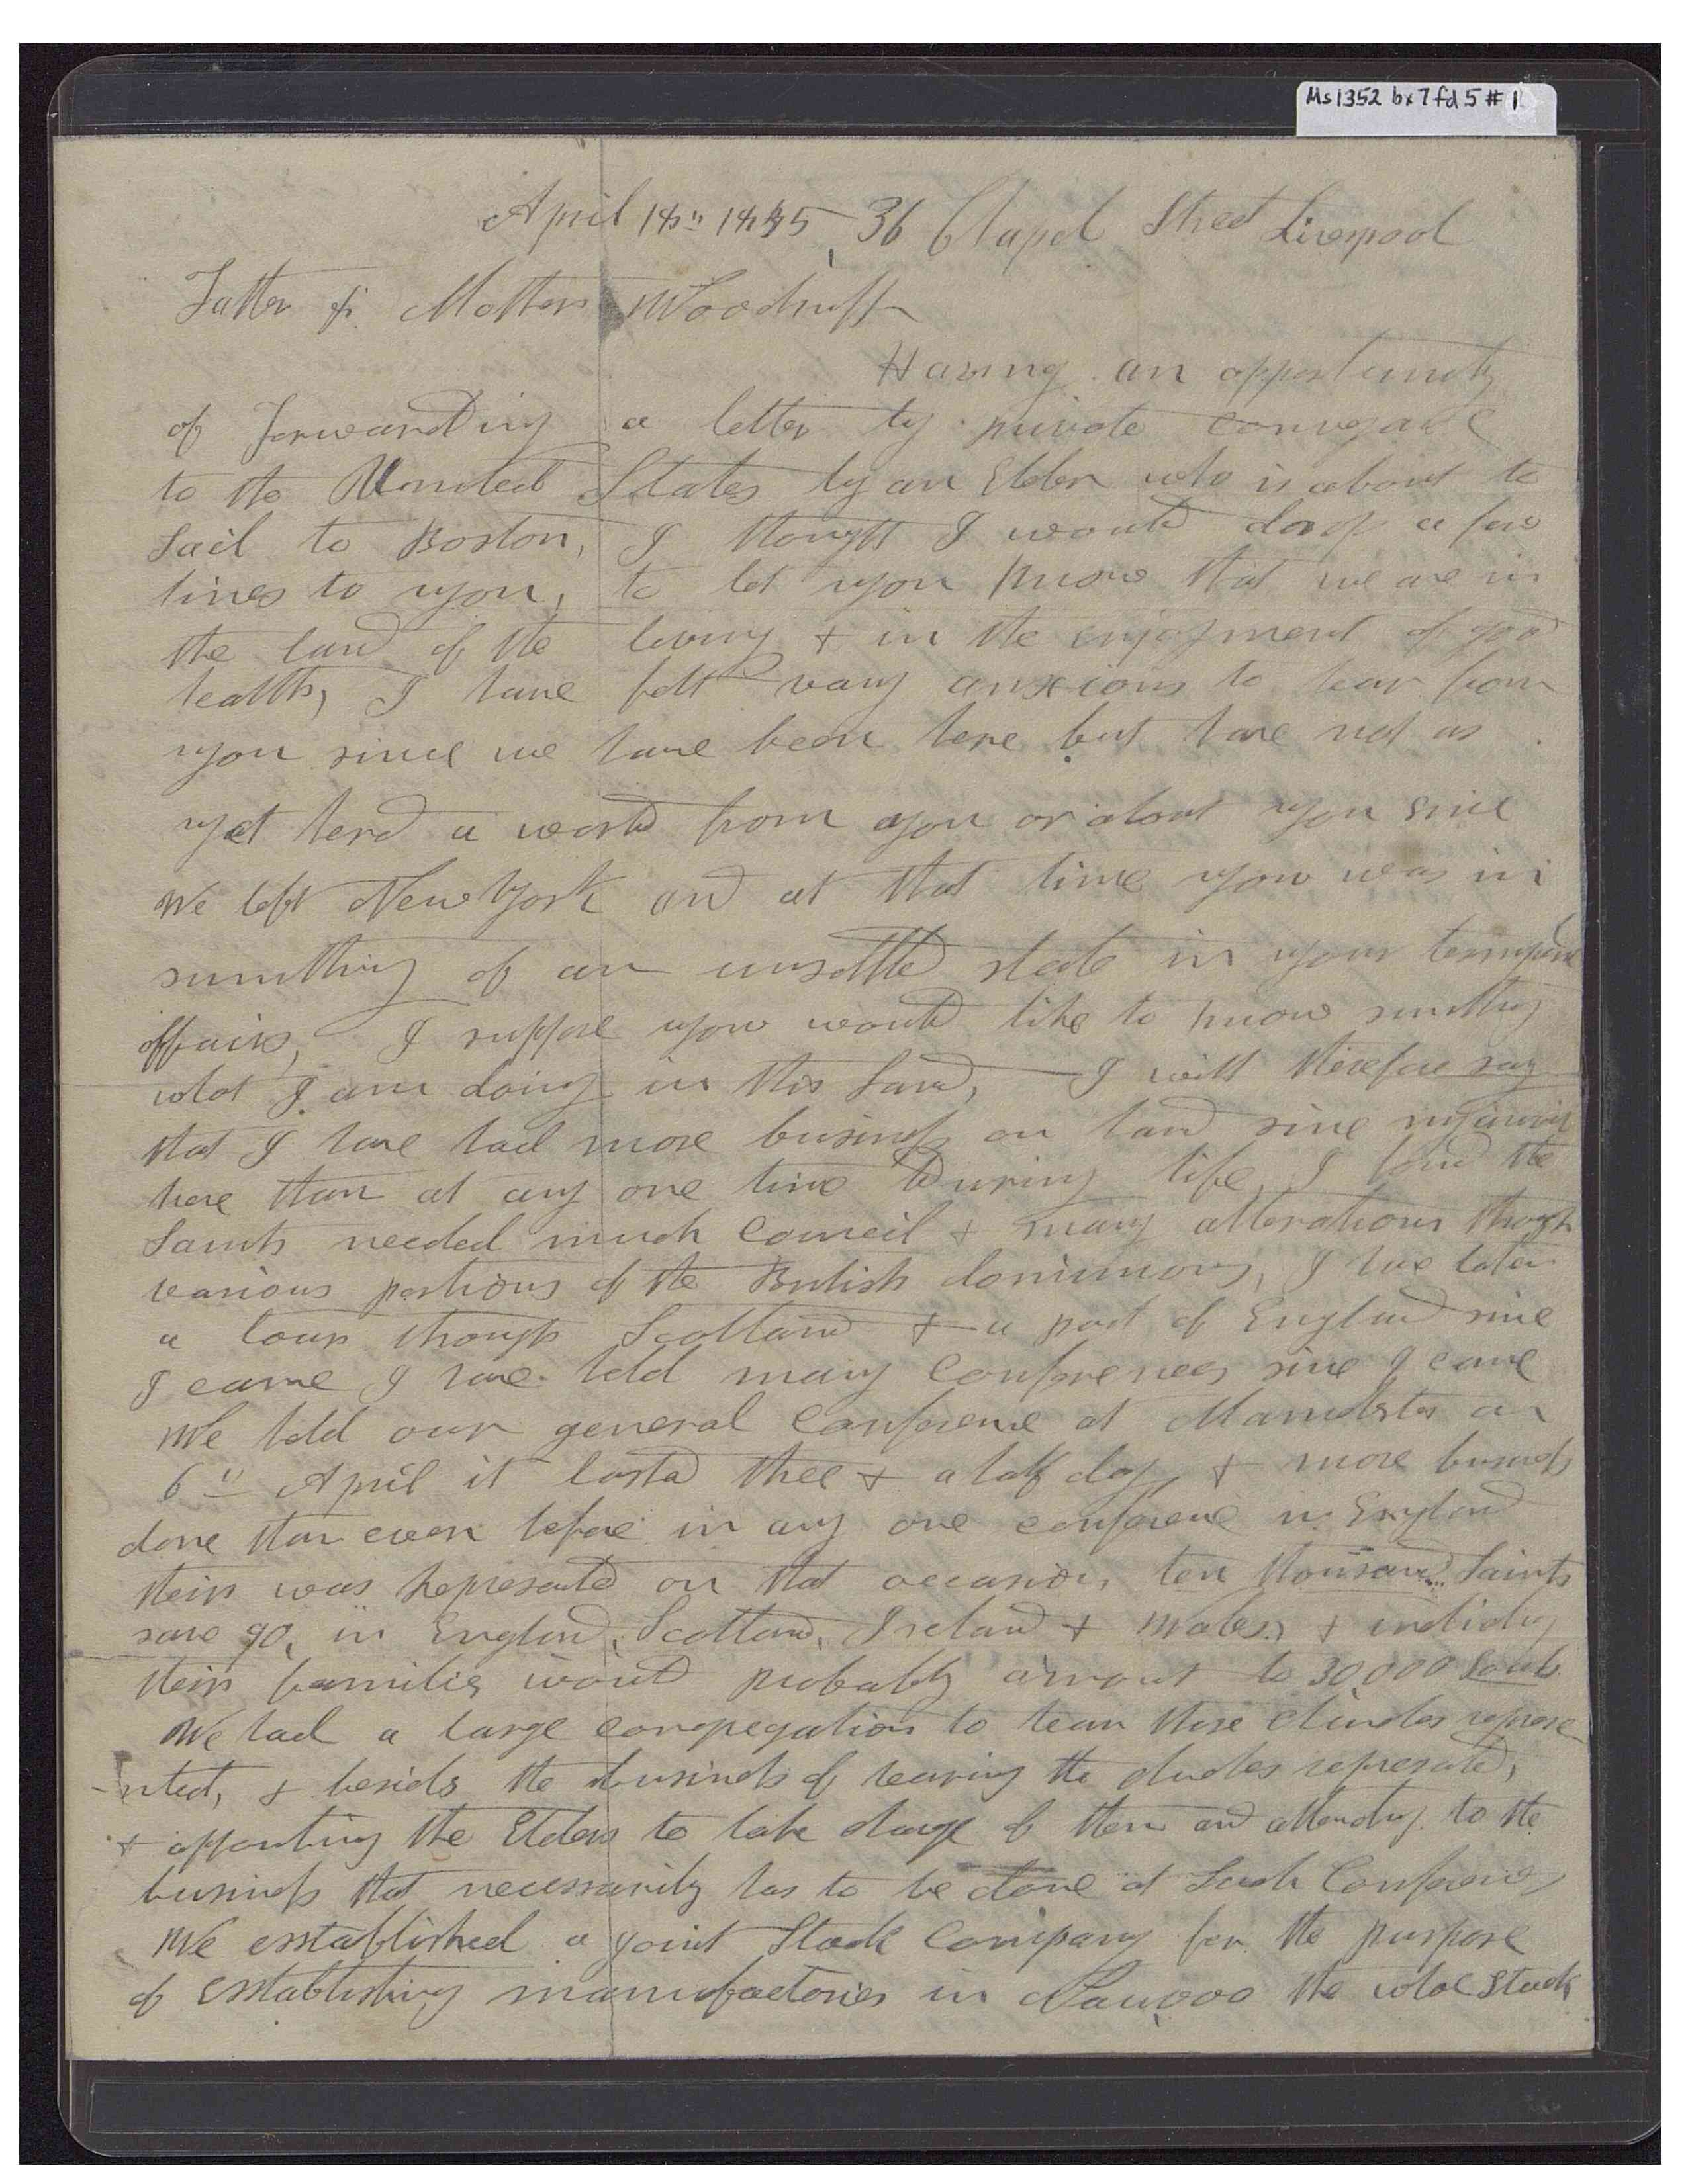 Ms 1352 bx 7 fd 5 # 1
April 18" 1845, 36 Chapel Street Liverpool
Father & Mother Woodruff
Having an opportunity
of forwarding a letter by private conveyance
to the United States by an Elder who is about to
Sail to Boston, I thought I would drop a few
lines to you, to let you know that we are in
the land of the living & in the enjoyment of good
health, I have felt vary anxcious to hear from
you since we have been here but have not as
yet herd a word from you or about you since
We left New York and at that time you was in
sumthing of an unsettled state in your temporal
affairs, I suppose you would like to know sumthing
what I am doing in this Land, I will therefore say
that I have had more business on hand since my arrival
here than at any one time During life, I find the
Saints needed much Council & many alterations through
various portions of the British dominions, I have taken
a tour through Scotland & a part of England since
I came I have held many Conferences since I came
We held our general Conference at Manchester on
6" April it lasted three & a half days & more business
done than ever before in any one conference in England
their was represented on that occasion, ten thousand Saints
save 90, in England, Scotland, Ireland & Wales, & including
their families would probably amount to 30,000 Souls
We had a large congregation to hear those Churches represe
-nted, & besids the business of hearing the churches represented,
& appointing the Elders to take charge of them and attending to the
business that necessarily has to be done at Such Conferences
We established a joint Stock Company for the purpose
of establishing manufactories in Nauvoo the whole Stock